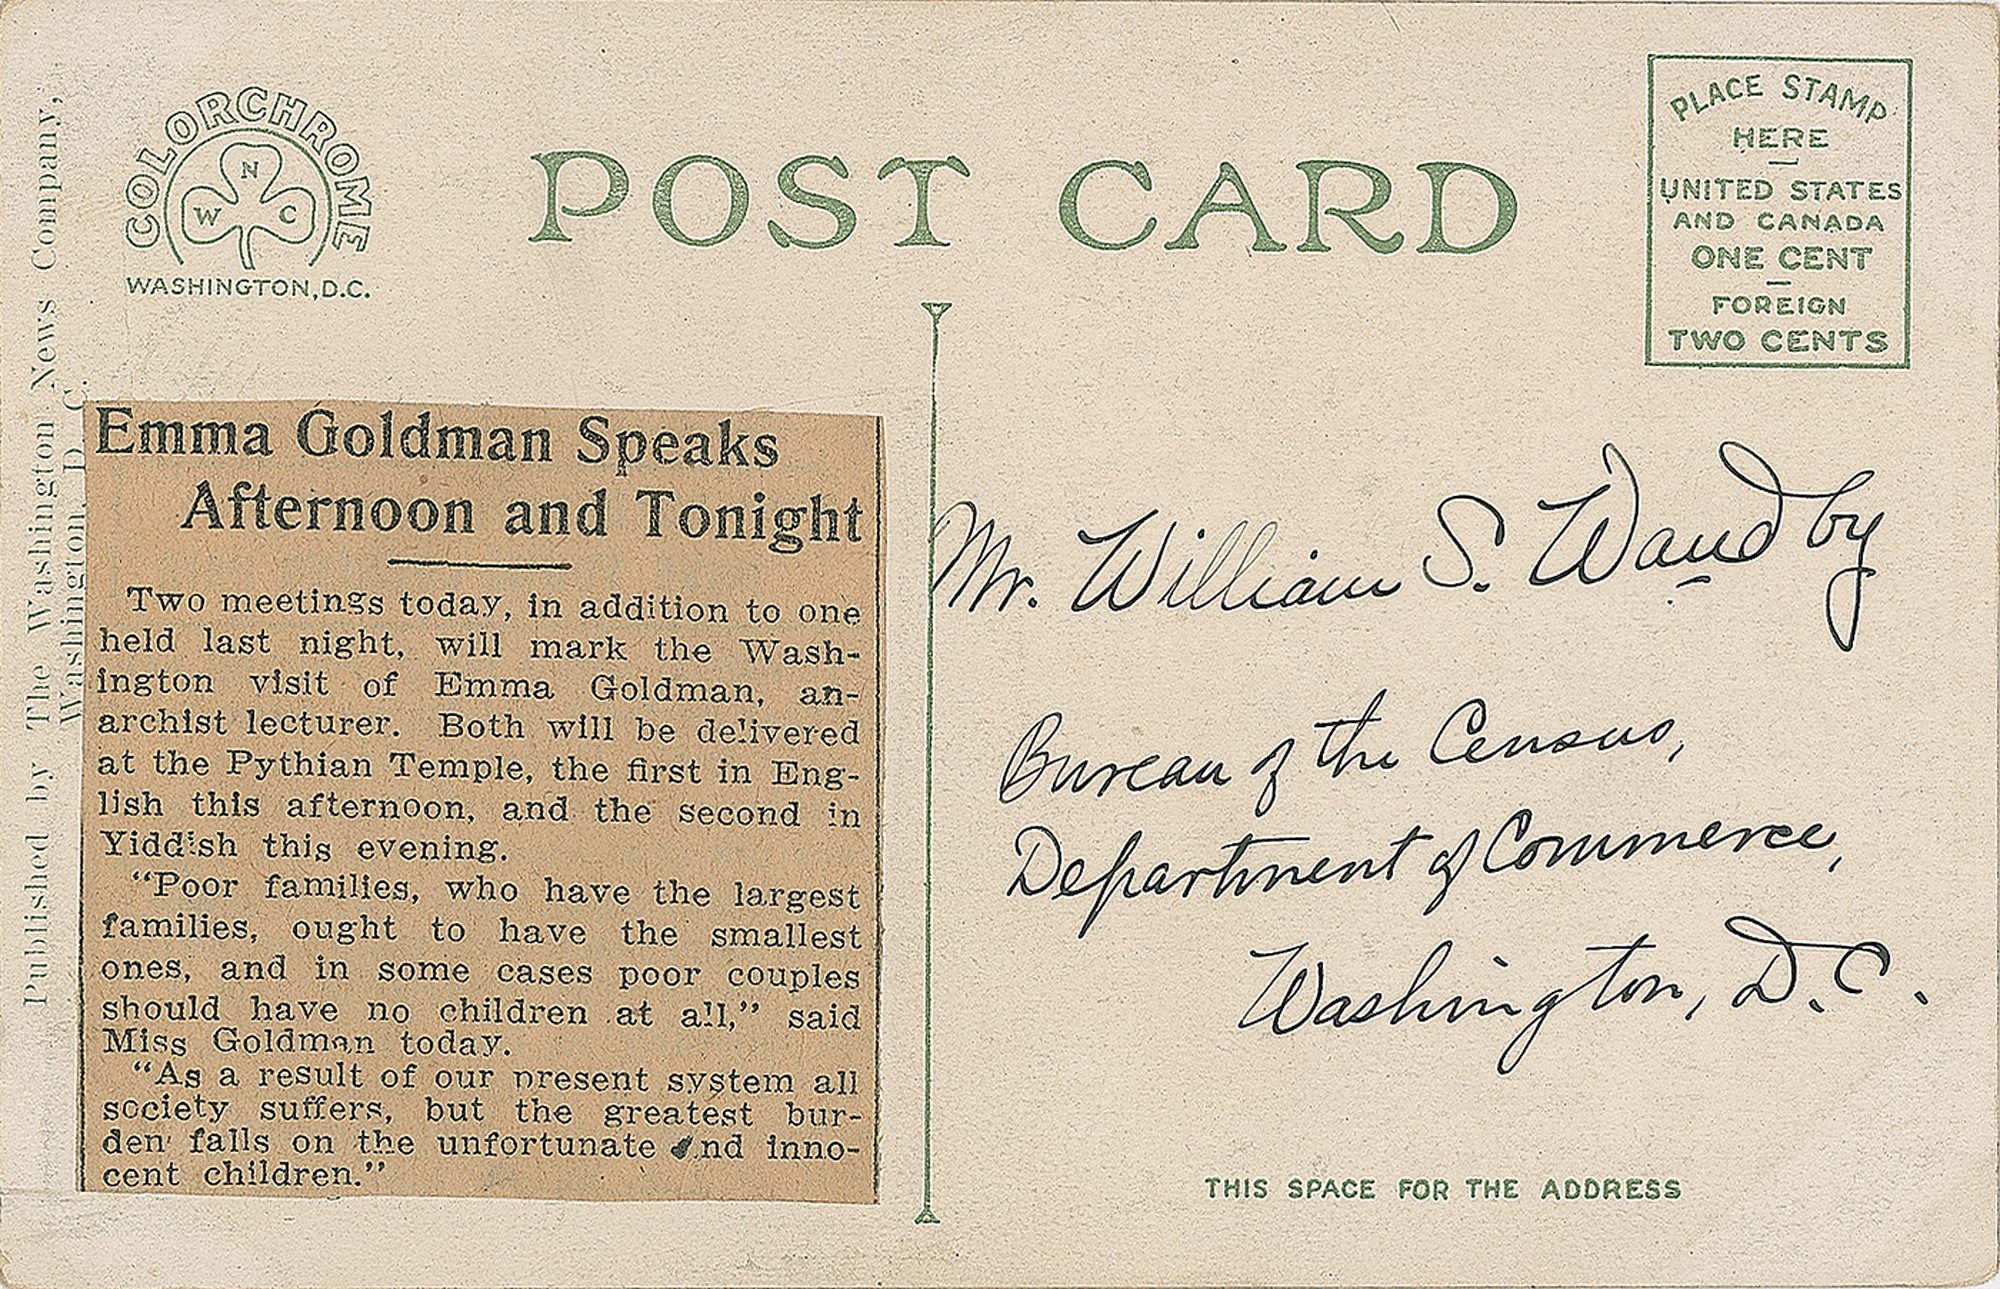 COLORCHROME
N
W C
WASHINGTON, D.C.
POST CARD
PLACE STAMP
HERE
UNITED STATES
AND CANADA
ONE CENT
FOREIGN
TWO CENTS
Published by The Washington News Company,
Washington, D. C.
Emma Goldman Speaks
Afternoon and Tonight
Two meetings today, in addition to one
held last night, will mark the Wash-
ington visit of Emma Goldman, an-
archist lecturer. Both will be delivered
at the Pythian Temple, the first in Eng-
lish this afternoon, and the second in
Yiddish this evening.
"Poor families, who have the largest
families, ought to have the smallest
ones, and in some cases poor couples
should have no children at all," said
Miss Goldman today.
"As a result of our present system all
society suffers, but the greatest bur-
den falls on the unfortunate and inno-
cent children."
Mr. William S. Waudby
Bureau of the Census,
Department of Commerce,
Washington, D.C.
THIS SPACE FOR THE ADDRESS